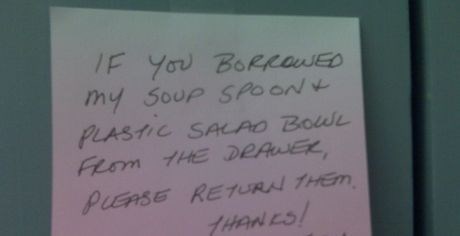 IF YOU BORROWED
MY SOUP SPOON +
PLASTIC SALAD BOWL
FROM THE DRAWER,
PLEASE RETURN THEM.
THANKS!